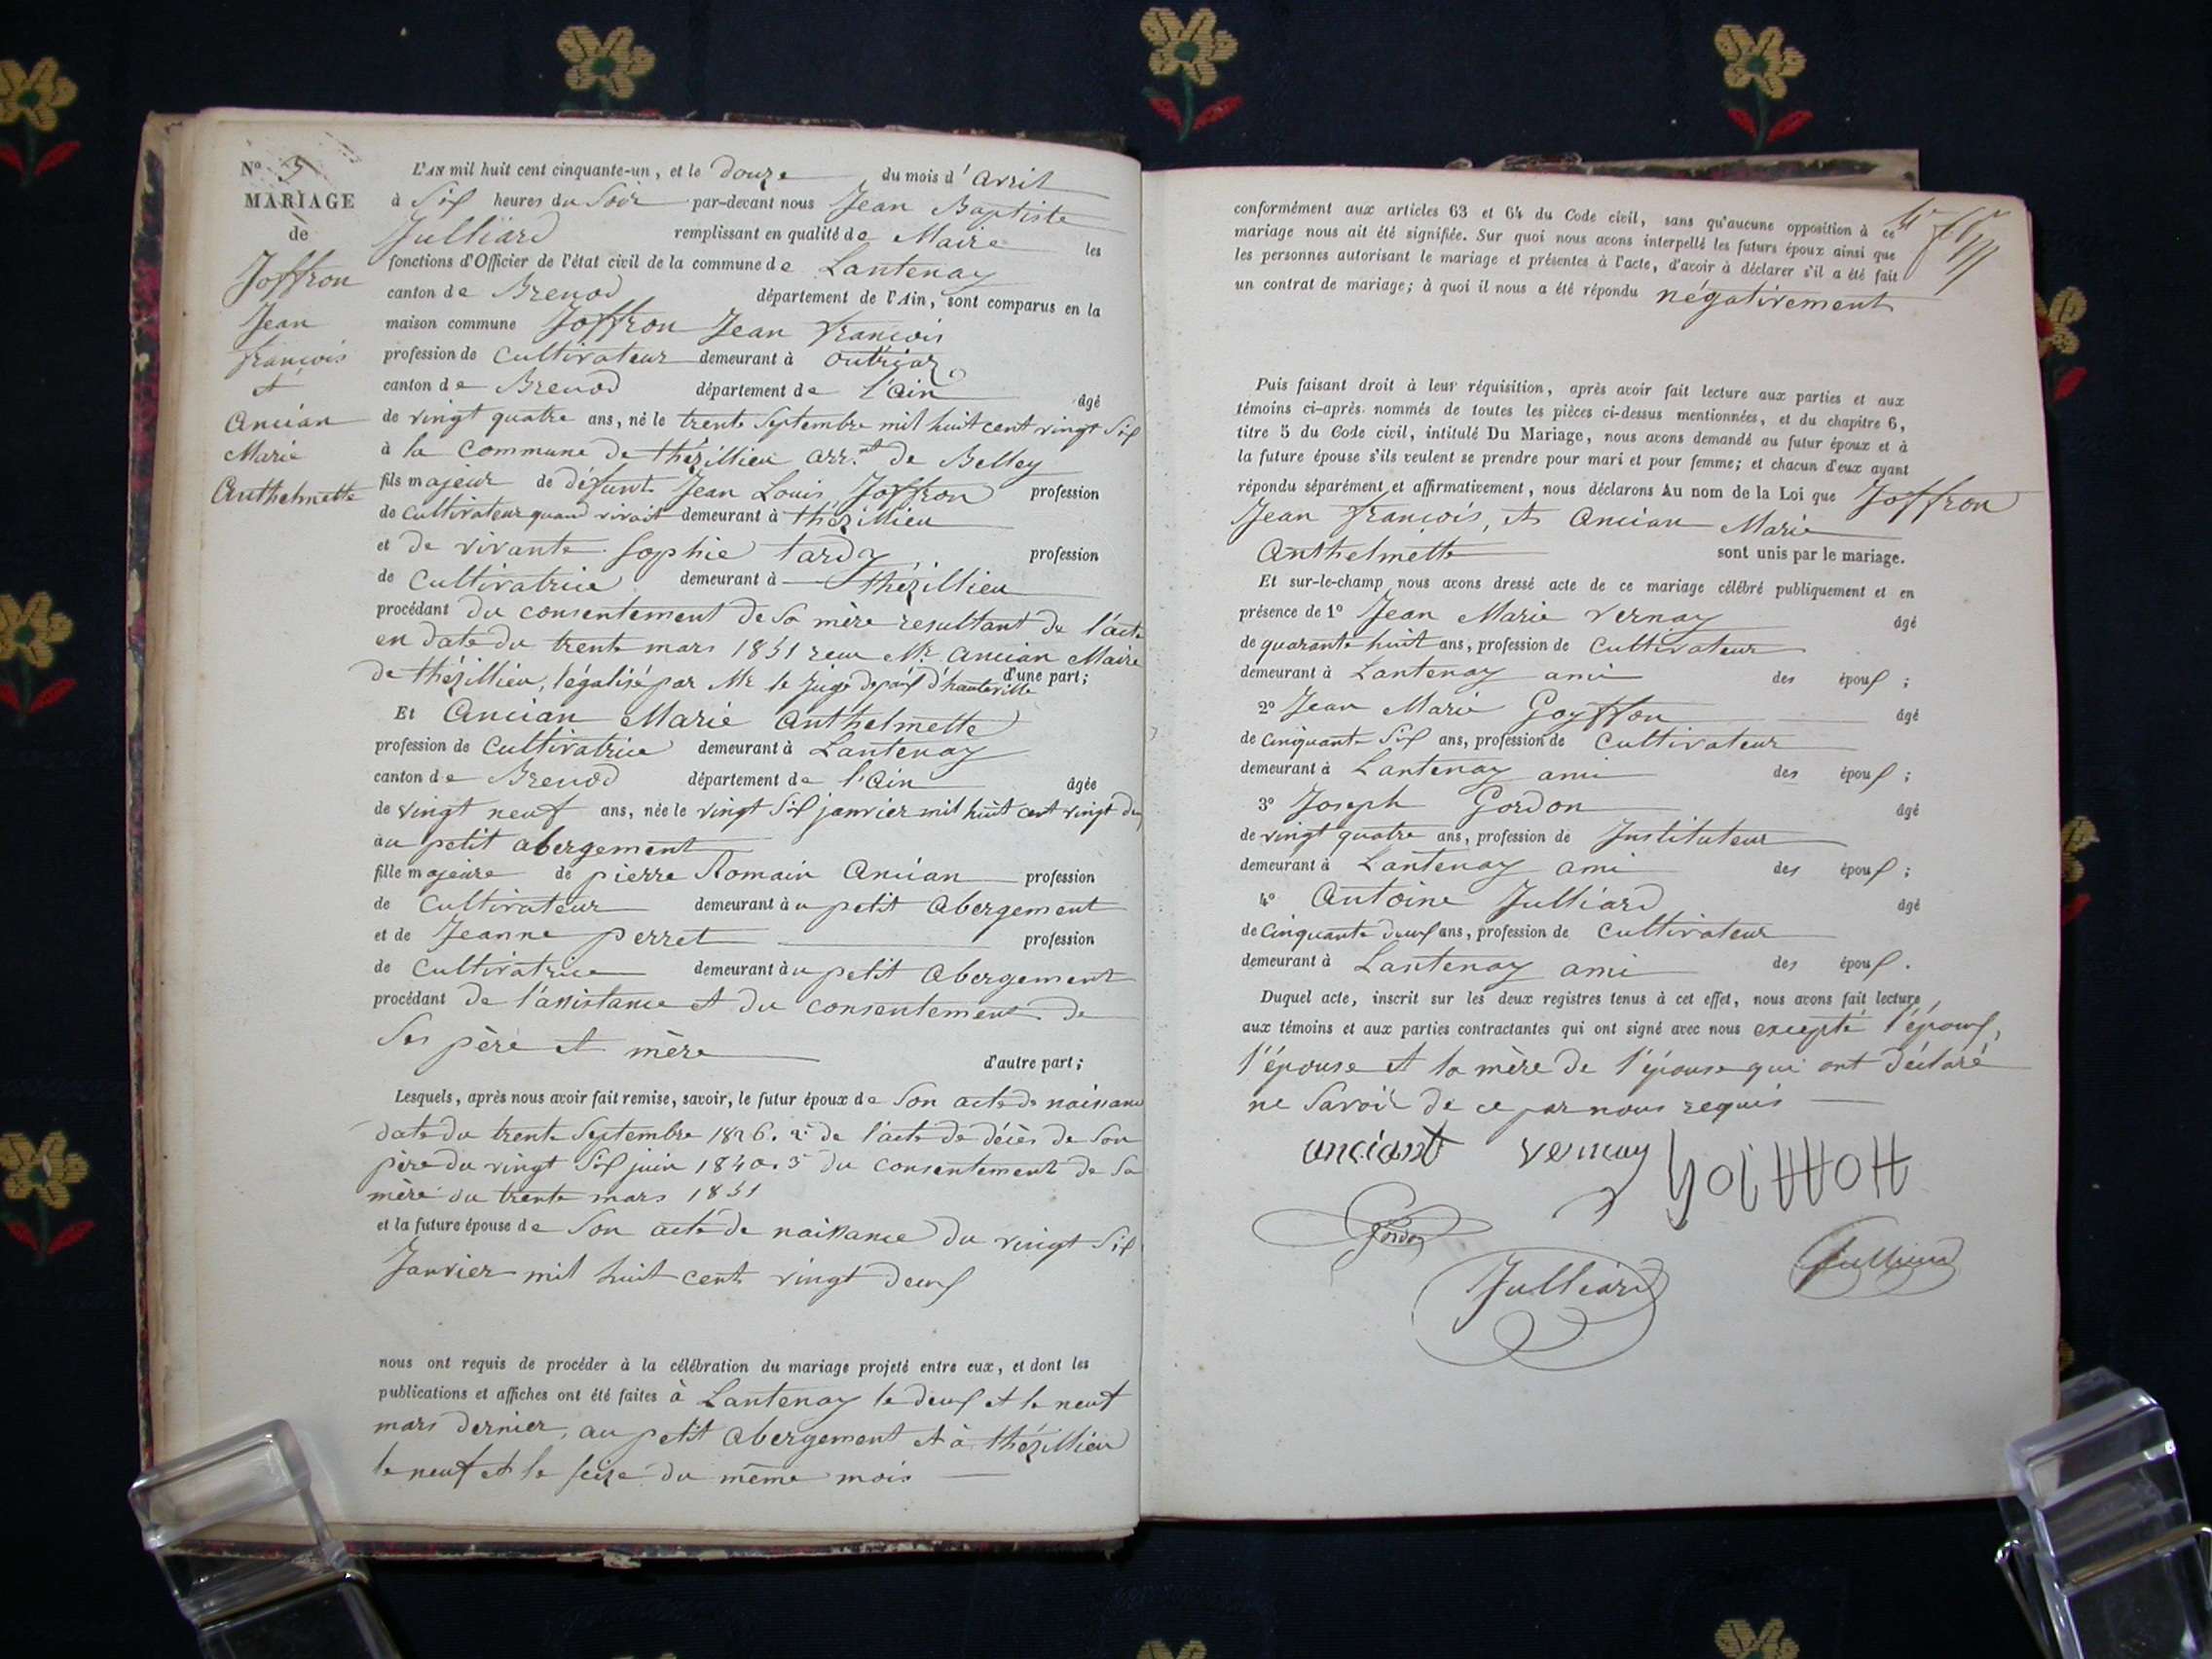 N° 5
MARIAGE
de
Joffron
Jean
françois
et
Ancian
Marie
Anthelmette
L'AN mil huit cent cinquante-un, et le douze du mois d'avril
à Six heures du Soir par-devant nous Jean Baptiste
Julliard remplissant en qualité de Maire les
fonctions d'Officier de l'état civil de la commune de Lantenay
canton de Brenod département de l'Ain, sont comparus en la
maison commune Joffron Jean françois
profession de Cultivateur demeurant à outriaz
canton de Brenod département de l'ain âgé
de vingt quatre ans, né le trente Septembre mil huit cent vingt Six
à la Commune de thézillieu arr.nt de Belley
fils majeur de défunt Jean Louis Joffron profession
de Cultivateur quand vivait demeurant à thézillieu
et de vivante Sophie tardy profession
de Cultivatrice demeurant à thézillieu
procédant du consentement de Sa mère resultant de l'acte
en date du trente mars 1851 reçu Mr. Ancian Maire
de thézillieu, légalisé par Mr le Juge de paix d'hauteville d'une part;
Et Ancian Marie Anthelmette
profession de Cultivatrice demeurant à Lantenay
canton de Brenod département de l'Ain âgée
de vingt neuf ans, née le vingt Six janvier mil huit cent vingt deux
au petit abergement
fille majeure de pierre Romain Ancian profession
de Cultivateur demeurant àu petit Abergement
et de Jeanne perret profession
de Cultivatrice demeurant àu petit Abergement
procédant de l'assistance et du consentement de
Ses père et mère d'autre part;
Lesquels, après nous avoir fait remise, savoir, le futur époux de Son acte de naissance
date du trente Septembre 1826. 2° de l'acte de décès de Son
père du vingt Six juin 1840. 3° du consentement de Sa
mère du trente mars 1851
et la future épouse de Son acte de naissance du vingt Six
Janvier mil huit cent vingt deux
nous ont requis de procéder à la célébration du mariage projeté entre eux, et dont les
publications et affiches ont été faites à Lantenay le deux et le neuf
mars dernier, au petit Abergement et à thézillieu
le neuf et le seize du même mois
conformément aux articles 63 et 64 du Code civil, sans qu'aucune opposition à ce
mariage nous ait été signifiée. Sur quoi nous avons interpellé les futurs époux ainsi que
les personnes autorisant le mariage et présentes à l'acte, d'avoir à déclarer s'il a été fait
un contrat de mariage; à quoi il nous a été répondu négativement
Puis faisant droit à leur réquisition, après avoir fait lecture aux parties et aux
témoins ci-après nommés de toutes les pièces ci-dessus mentionnées, et du chapitre 6,
titre 5 du Code civil, intitulé Du Mariage, nous avons demandé au futur époux et à
la future épouse s'ils veulent se prendre pour mari et pour femme; et chacun d'eux ayant
répondu séparément et affirmativement, nous déclarons Au nom de la Loi que Joffron
Jean françois, et Ancian Marie
Anthelmette sont unis par le mariage.
Et sur-le-champ nous avons dressé acte de ce mariage célébré publiquement et en
présence de 1° Jean Marie Vernay âgé
de quarante huit ans, profession de Cultivateur
demeurant à Lantenay ami des époux ;
2° Jean Marie Goyffon âgé
de Cinquante Six ans, profession de Cultivateur
demeurant à Lantenay ami des époux ;
3° Joseph Gordon âgé
de vingt quatre ans, profession de Instituteur
demeurant à Lantenay ami des époux ;
4° Antoine Julliard âgé
de Cinquante deux ans, profession de Cultivateur
demeurant à Lantenay ami des époux .
Duquel acte, inscrit sur les deux registres tenus à cet effet, nous avons fait lecture
aux témoins et aux parties contractantes qui ont signé avec nous excepté l'époux,
l'épouse et la mère de l'épouse qui ont déclaré
ne Savoir de ce par nous requis
anciant vernay goiffon
Gordon
Julliard Julliard